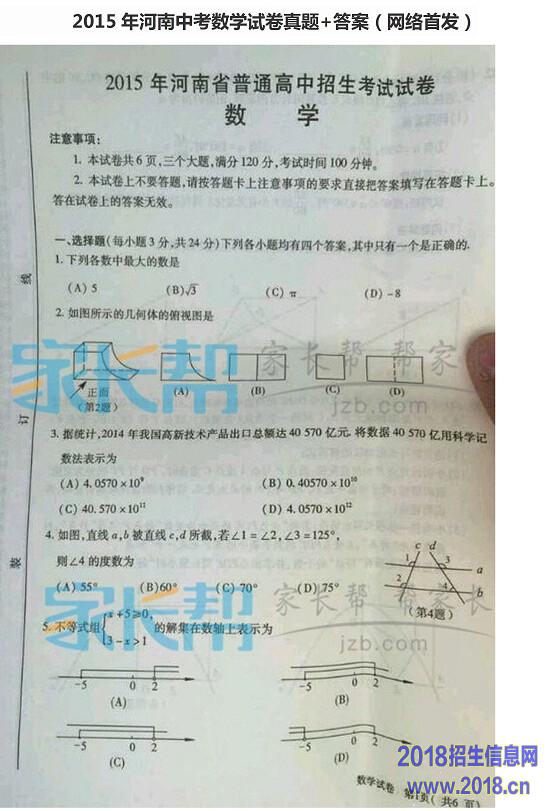 2015 年河南中考数学试卷真题+答案（网络首发）
2015 年河南省普通高中招生考试试卷
数 学
注意事项：
1. 本试卷共 6 页，三个大题，满分 120 分，考试时间 100 分钟。
2. 本试卷上不要答题，请按答题卡上注意事项的要求直接把答案填写在答题卡上。
答在试卷上的答案无效。
一、选择题（每小题 3 分，共 24 分）下列各小题均有四个答案，其中只有一个是正确的.
1. 下列各数中最大的数是
(A) 5 (B) √3 (C) π (D) -8
2. 如图所示的几何体的俯视图是
正面
(第2题)
(A) (B) (C) (D)
3. 据统计，2014 年我国高新技术产品出口总额达 40 570 亿元. 将数据 40 570 亿用科学记
数法表示为
(A) 4.0570 × 10⁹ (B) 0.40570 × 10¹⁰
(C) 40.570 × 10¹¹ (D) 4.0570 × 10¹²
4. 如图，直线 a, b 被直线 c, d 所截，若∠1 = ∠2，∠3 = 125°，
则∠4 的度数为
(A) 55° (B) 60° (C) 70° (D) 75°
c d
1 3
a
2 4
(第4题)
5. 不等式组 { x + 5 ≥ 0,
3 - x > 1
的解集在数轴上表示为
-5 0 2
(A)
-5 0 2
(B)
-5 0 2
(C)
-5 0 2
(D)
数学试卷 第1页（共6 页）
线
订
装
家长帮
家长帮 帮家
jzb.com
家长帮
家长帮 帮家长
jzb.com
2018招生信息网
www.2018.cn